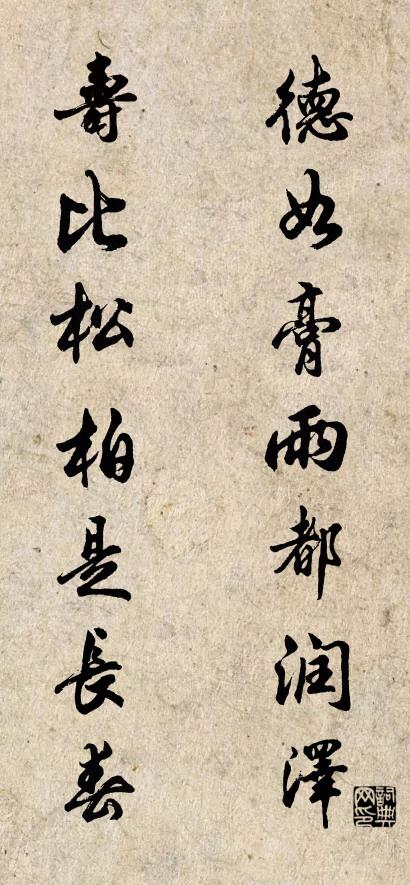 德如膏雨都润澤
壽比松柏是長春
詞典网印